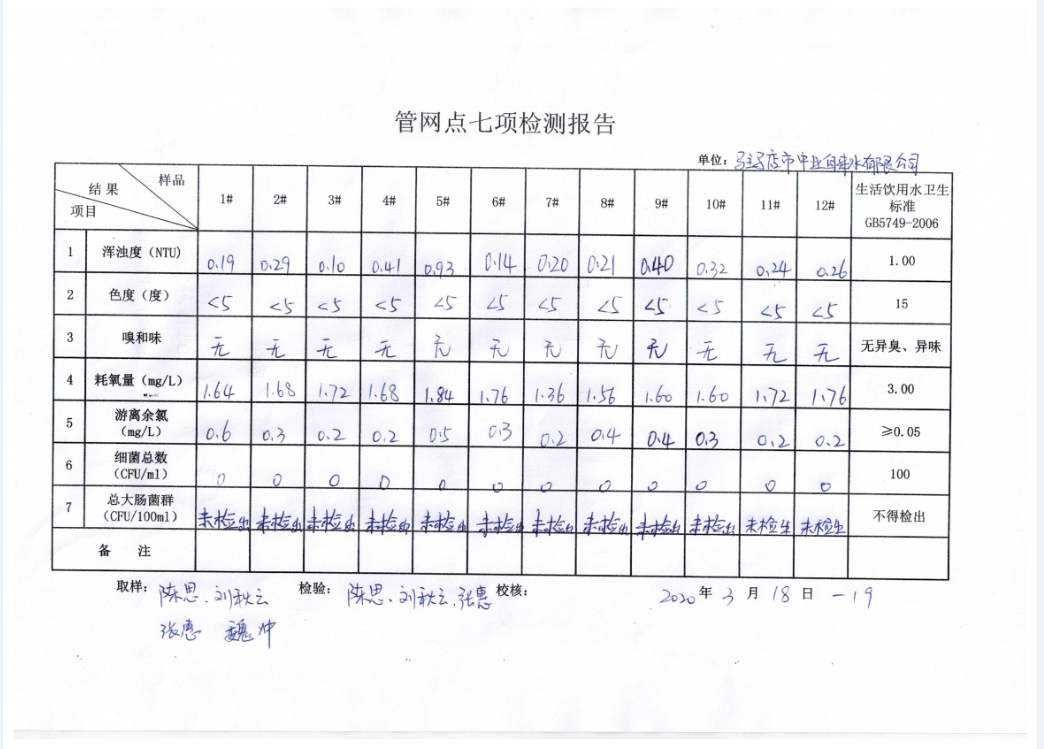 管网点七项检测报告
单位：驻马店市中业自来水有限公司
结果 样品 项目 1# 2# 3# 4# 5# 6# 7# 8# 9# 10# 11# 12# 生活饮用水卫生标准 GB5749-2006
1 浑浊度（NTU） 0.19 0.29 0.10 0.41 0.93 0.14 0.20 0.21 0.40 0.32 0.24 0.26 1.00
2 色度（度） <5 <5 <5 <5 <5 <5 <5 <5 <5 <5 <5 <5 15
3 嗅和味 无 无 无 无 无 无 无 无 无 无 无 无 无异臭、异味
4 耗氧量（mg/L） 1.64 1.68 1.72 1.68 1.84 1.76 1.36 1.56 1.60 1.60 1.72 1.76 3.00
5 游离余氯（mg/L） 0.6 0.3 0.2 0.2 0.5 0.3 0.2 0.4 0.4 0.3 0.2 0.2 ≥0.05
6 细菌总数（CFU/ml） 0 0 0 0 0 0 0 0 0 0 0 0 100
7 总大肠菌群（CFU/100ml） 未检出 未检出 未检出 未检出 未检出 未检出 未检出 未检出 未检出 未检出 未检出 未检出 不得检出
备 注
取样：陈思、刘秋云 检验：陈思、刘秋云、张惠 校核： 2020年3月18日－19
张惠 魏冲